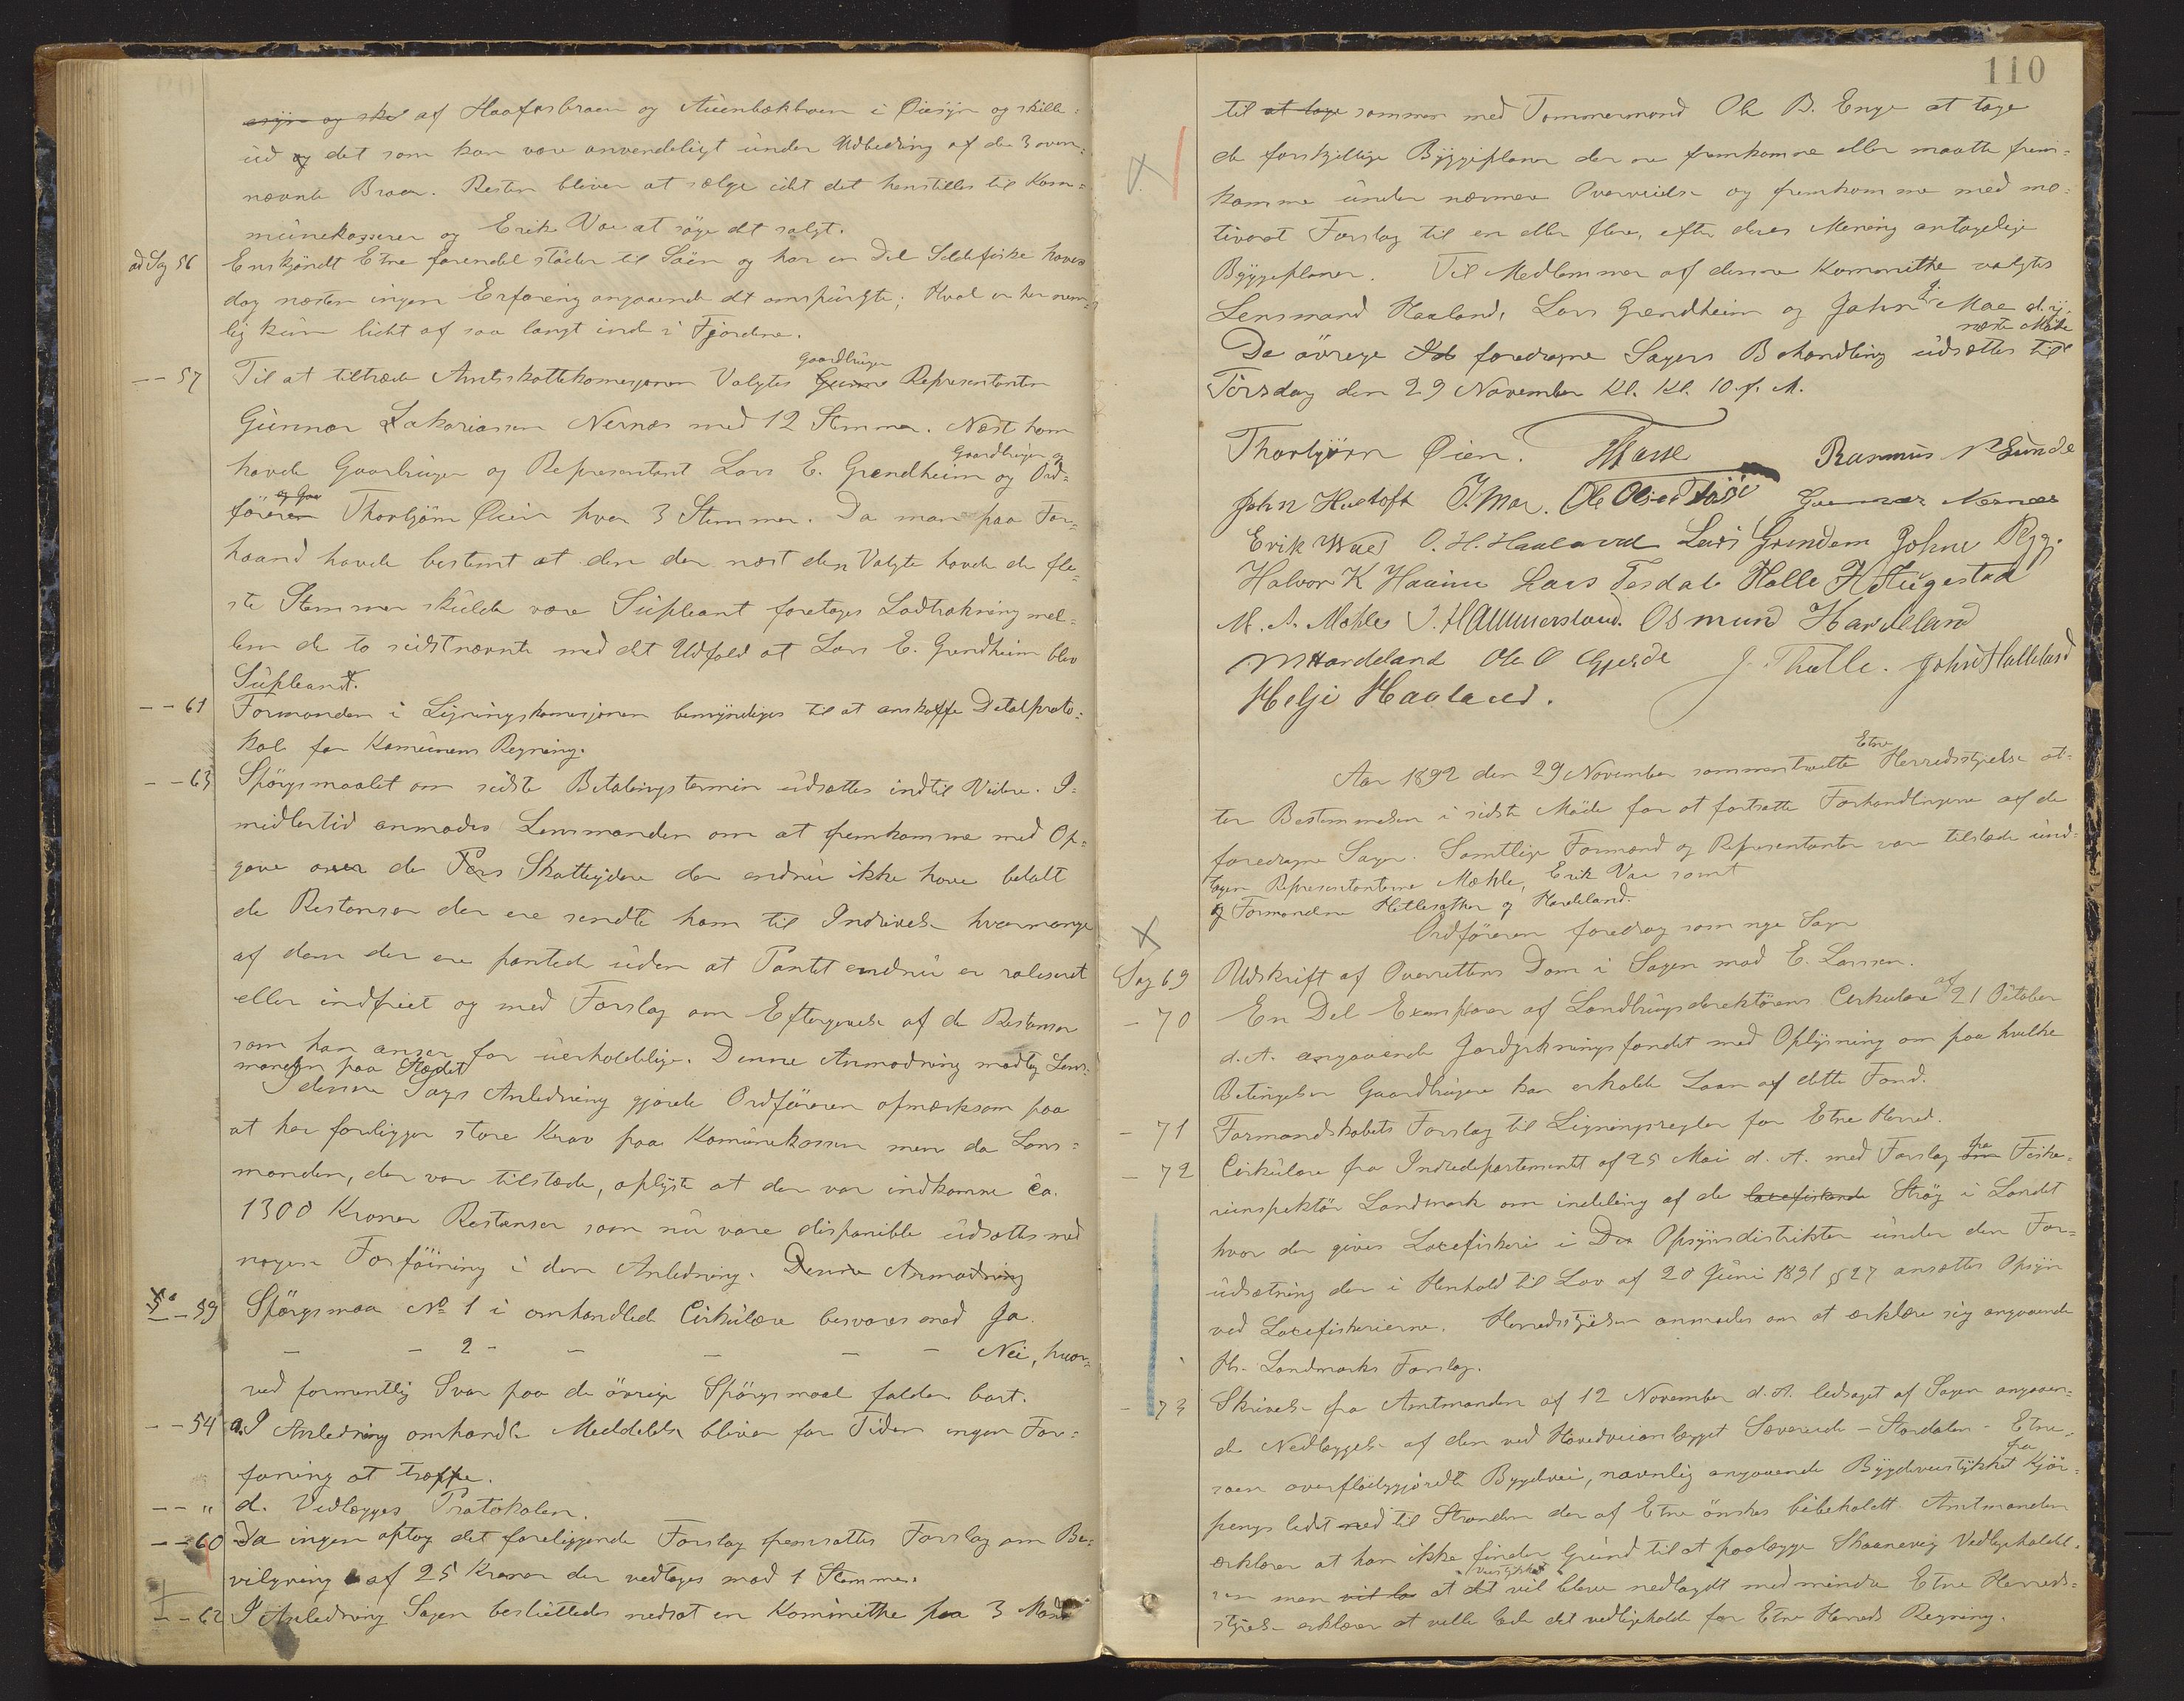 af Haafosbroen og i Øiesyn og skille-
ud og det som kan være anvendeligt under Udbedring af de 3 oven-
nævnte Broer. Resten bliver at sælge idet det henstilles til Kom-
munekasserer og Erik Vae at søge det solgt.
ad Sag 56 Enskjøndt Etne forendel støder til Søen og har en Del Sildefiske haves
dog næsten ingen Erfaring angaaende det omspurgte; Hval er her nem-
lig kun lidt af saa langt ind i Fjordene.
Gaardbruger
-- 57 Til at tiltræde Amtsskattekomisjonen Valgtes Representanten
Gunnar Zakariassen Nernæs med 12 Stemmer. Næst ham
Gaardbruger og
havde Gaarbruger og Representant Lars E. Grendheim og Ord-
føreren Thorbjørn Øien hver 3 Stemmer. Da man paa For-
haand havde bestemt at den der næst den Valgte havde de fle-
ste Stemmer skulde være Supleant foretoges Lodtrækning mel-
lem de to sidstnævnte med det Udfald at Lars E. Grendheim blev
Supleant.
-- 61 Formanden i Ligningskomisjonen bemyndiges til at anskaffe Detalproto-
kol for Komunens Regning.
-- 63 Spørgsmaalet om sidste Betalingstermin udsættes indtil Videre. I-
midlertid anmodes Lensmanden om at fremkomme med Op-
gave over de Skatteydere der endnu ikke have betalt
de Restanser der ere sendte ham til Indrivelse hvormange
af dem der ere pantede uden at Pantet endnu er raliseret
eller indfriet og med Forslag om Eftergivelse af de Restanser
som han anser for uerholdelige. Denne Anmodning modtog Lens-
manden paa Stedet
I denne Sags Anledning gjorde Ordføreren opmærksom paa
at her foreligger store Krav paa Komunekassen men da Lens-
manden, der var tilstede, oplyste at der var indkomne ca.
1300 Kroner Restanser som nu vare disponible udsættes med
nogen Forføining i den Anledning. Denne Anmodning
- 59 Spørgsmaal No 1 i omhandlede Cirkulære besvares med Ja.
- - 2 - - - - - Nei, hvor-
ved formentlig Svar paa de øvrige Spørgsmaal falder bort.
-- 54 a. I Anledning omhandle Meddelelse bliver for Tiden ingen For-
føning at træffe.
-- " d. Vedlægges Protokolen.
-- 60 Da ingen optog det foreliggende Forslag fremsattes Forslag om Be-
vilgning af 25 Kroner der vedtoges mod 1 Stemme.
-- 62 I Anledning Sagen besluttedes nedsat en Kommithe paa 3 Mænd
110
til at tage sammen med Tømmermand Ole B. Enge at tage
de forskjellige Byggeplaner der ere fremkomne eller maatte frem-
komme under nærmere Overveielse og fremkomme med mo-
tiveret Forslag til en eller flere, efter deres Mening antagelige
Byggeplaner. Til Medlemmer af denne Kommithe valgtes
Lensmand Haaland, Lars Grendheim og John Mae
næste Møde
De øvrige foredragne Sagers Behandling udsættes til
Tirsdag den 29 November Kl. Kl. 10 f. M.
Thorbjørn Øien. Rasmus Sunde
John Hustoft J. Mae. Ole Olsen Gunnar Nernæs
Erik Wae O. H. Haaland Lars Grindem Johne Rygg.
Halvor K Haaim Lars Tesdal Halle H Haugestad
M. A. Mæhle J. Hammersland. Osmund Hardeland
M Hardeland Ole O Gjerde J. Thulle. John Halleland
Helje Haaland.
Etne
Aar 1892 den 29 November sammentraadte Herredsstyrelse ef-
ter Bestemmelsen i sidste Møde for at fortsætte Forhandlingerne af de
foredragne Sager. Samtlige Formænd og Representanter var tilstede und-
tagen Representanterne Mæhle, Erik Vae samt
og Formændene Hetlesæther og Hardeland.
Ordføreren foredrog som nye Sager
Sag 69 Udskrift af Overrettens Dom i Sagen mod E. Larsen.
- 70 En Del Exemplarer af Landbrugsdirektørens Cirkulære af 21 October
d. A. angaaende Jorddyrkningsfondet med Oplysning om paa hvilke
Betingelser Gaardbrugere kan erholde Laan af dette Fond.
- 71 Formandskabets Forslag til Ligningsregler for Etne Herred.
- 72 Cirkulære fra Indredepartementet af 25 Mai d. A. med Forslag fra Fiske-
riinspektør Landmark om indeling af de laxefiskende Strøg i Landet
hvor der gives Laxefiskeri i Opsynsdistrikter under den For-
udsætning der i Henhold til Lov af 20 Juni 1891 § 27 ansættes Opsyn
ved Laxefiskerierne. Herredsstyrelsen anmodes om at erklære sig angaaende
Hr. Landmarks Forslag.
- 73 Skrivelse fra Amtmanden af 12 November d. A. ledsaget af Sagen angaaen-
de Nedlæggelse af den ved Hovedveianlægget Sævereide - Stordalen - Etne
fra
søen overflødiggjordte Bygdevei, navnlig angaaende Bygdeveistykket Kjør-
pengs ledet ned til Stranden der af Etne ønskes bibeholdt. Amtmanden
erklærer at han ikke finder Grund til at paalægge Skaanevig Vedligeholdel-
veistykket
sen men at det vil blive nedlagdt medmindre Etne Herreds-
styrelse erklærer at ville lade det vedligeholde for Etne Herreds Regning.